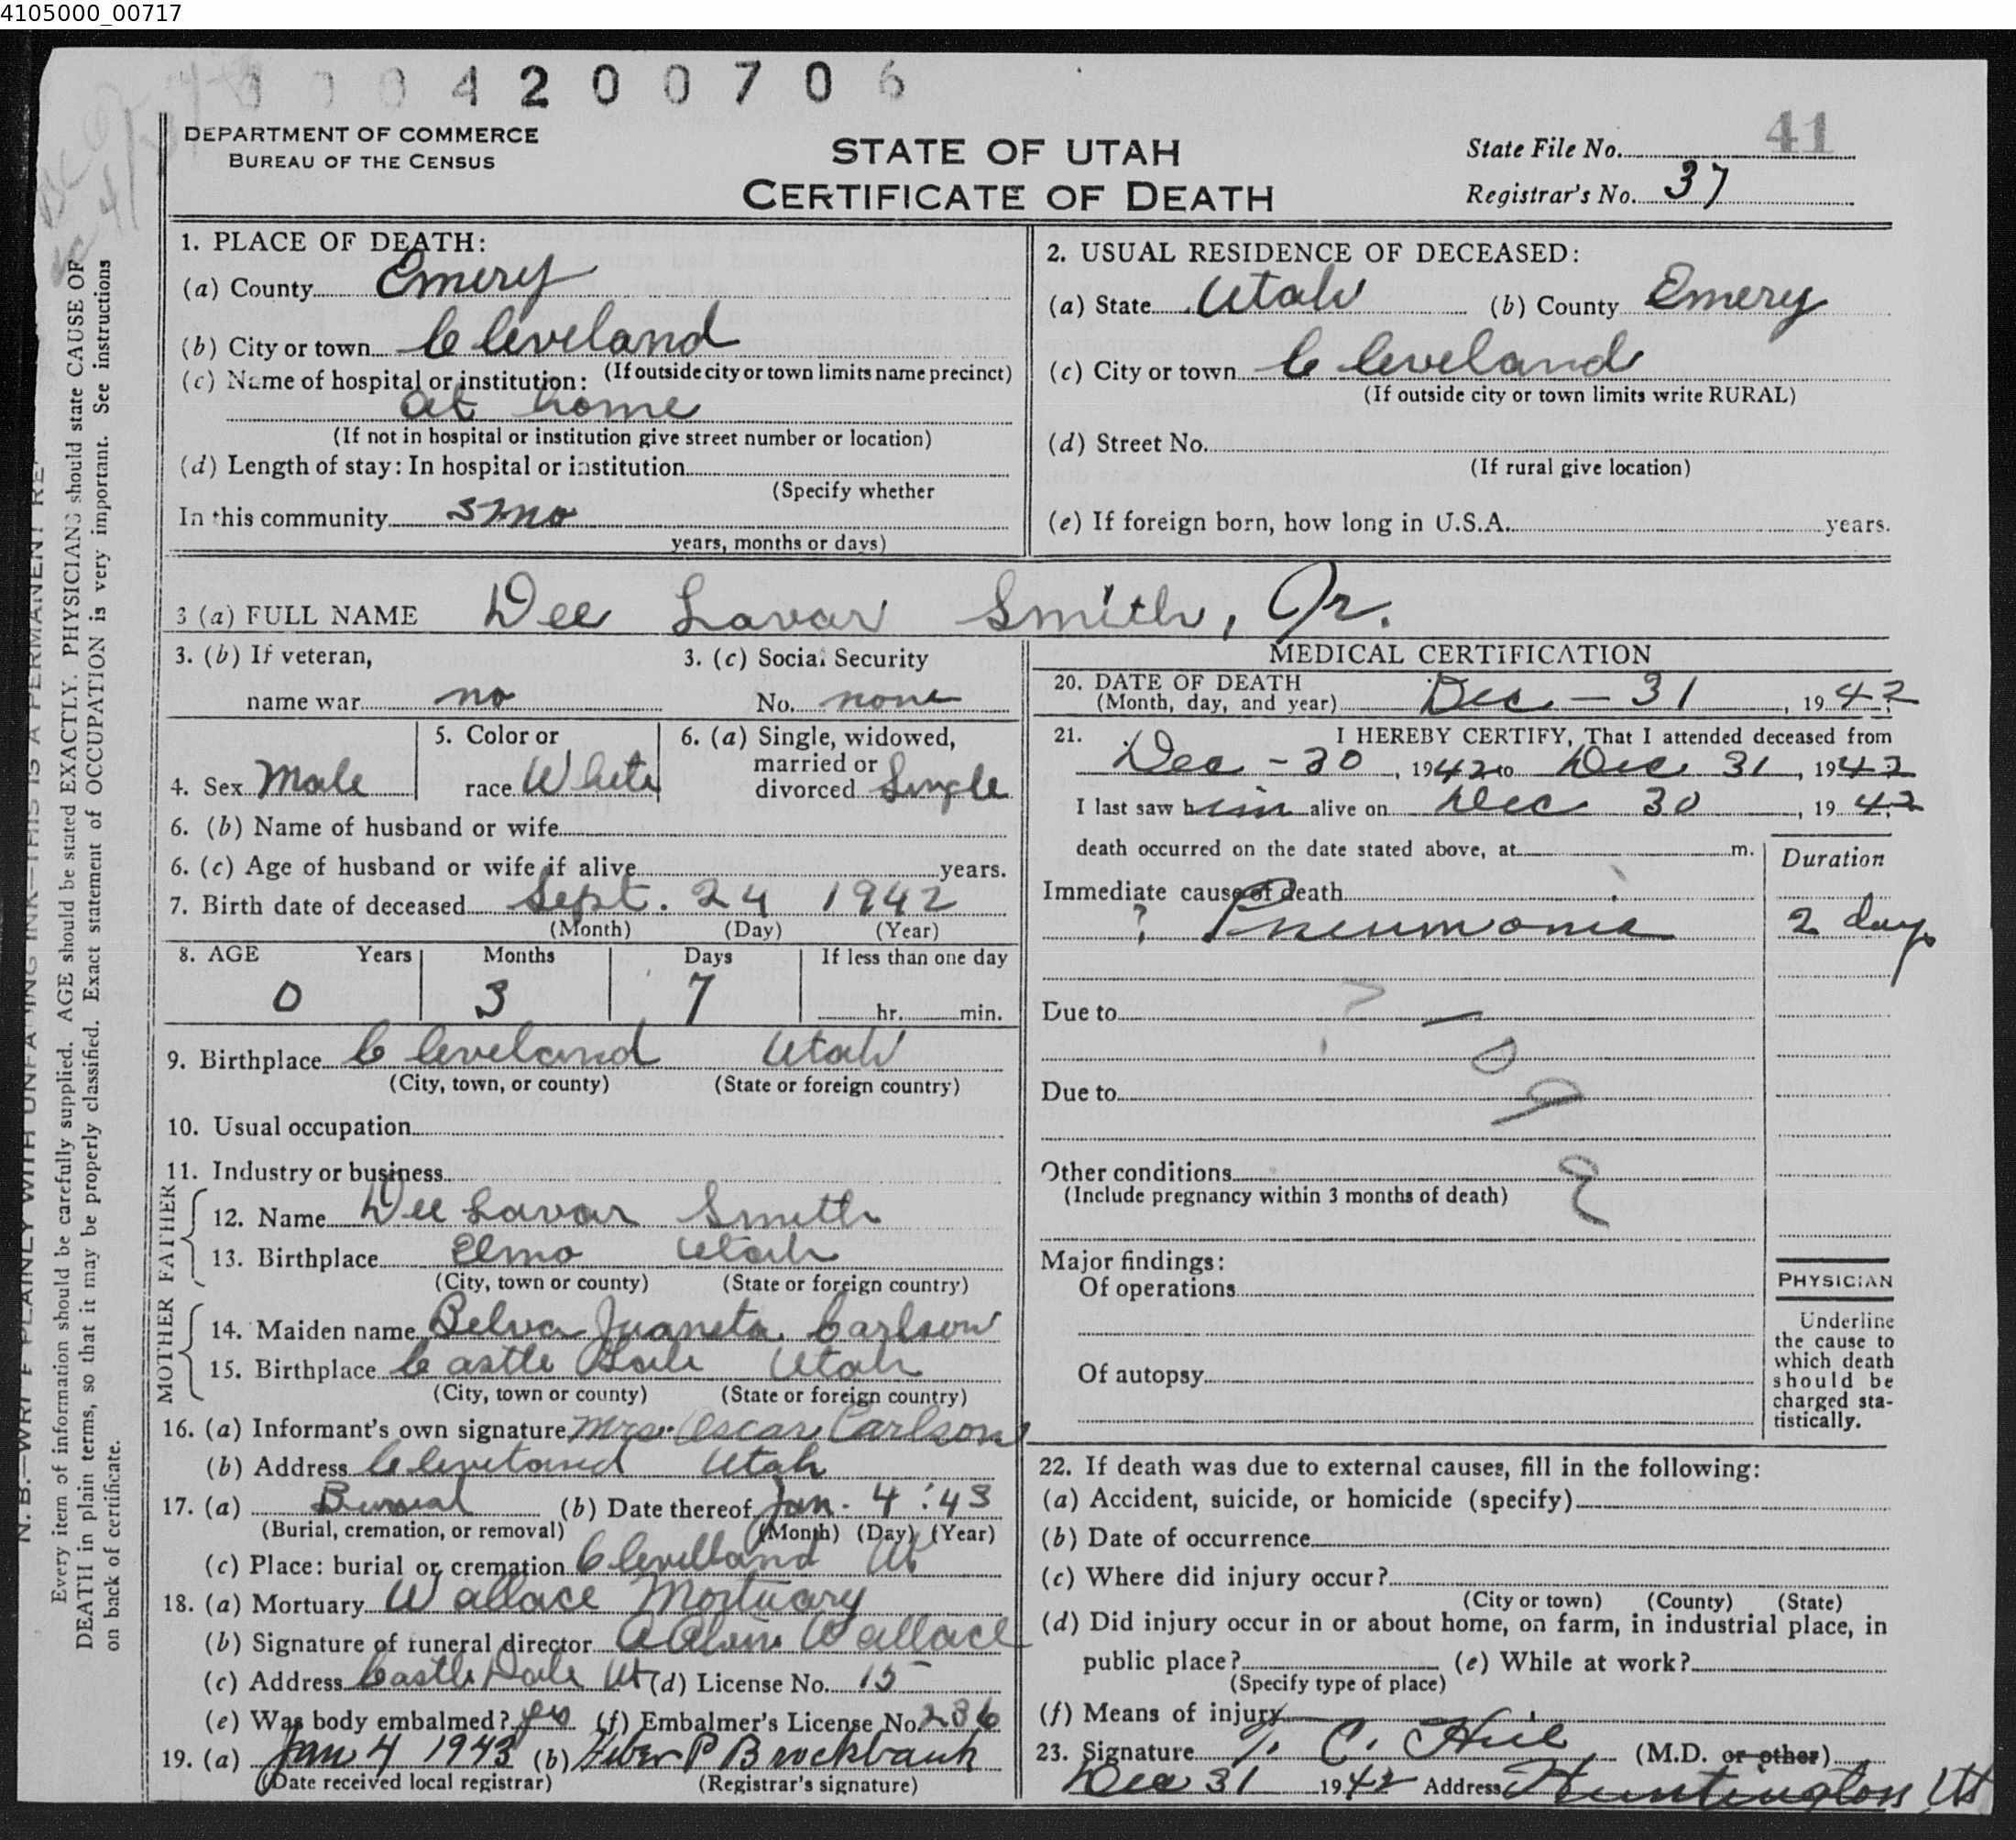 4105000_00717
0004200706
DEPARTMENT OF COMMERCE
BUREAU OF THE CENSUS
STATE OF UTAH
CERTIFICATE OF DEATH
State File No. 41
Registrar's No. 37
1. PLACE OF DEATH:
(a) County Emery
(b) City or town Cleveland
(c) Name of hospital or institution: (If outside city or town limits name precinct)
at home
(If not in hospital or institution give street number or location)
(d) Length of stay: In hospital or institution
(Specify whether
In this community mo
years, months or days)
2. USUAL RESIDENCE OF DECEASED:
(a) State Utah (b) County Emery
(c) City or town Cleveland
(If outside city or town limits write RURAL)
(d) Street No.
(If rural give location)
(e) If foreign born, how long in U.S.A. years.
3 (a) FULL NAME Dee Lavar Smith, Jr.
3. (b) If veteran,
name war no
3. (c) Social Security
No. none
4. Sex Male
5. Color or
race White
6. (a) Single, widowed,
married or
divorced Single
6. (b) Name of husband or wife
6. (c) Age of husband or wife if alive years.
7. Birth date of deceased Sept. 24 1942
(Month) (Day) (Year)
8. AGE Years Months Days If less than one day
0 3 7 hr. min.
9. Birthplace Cleveland Utah
(City, town, or county) (State or foreign country)
10. Usual occupation
11. Industry or business
FATHER
12. Name Dee Lavar Smith
13. Birthplace Elmo Utah
(City, town or county) (State or foreign country)
MOTHER
14. Maiden name Belva Juaneta Carlson
15. Birthplace Castle Dale Utah
(City, town or county) (State or foreign country)
16. (a) Informant's own signature Mrs. Oscar Carlson
(b) Address Cleveland Utah
17. (a) Burial (b) Date thereof Jan. 4 '43
(Burial, cremation, or removal) (Month) (Day) (Year)
(c) Place: burial or cremation Cleveland Ut
18. (a) Mortuary Wallace Mortuary
(b) Signature of funeral director Wallace
(c) Address Castle Dale Ut (d) License No. 15
(e) Was body embalmed? yes (f) Embalmer's License No. 236
19. (a) Jan 4 1943 (b) Heber P Brockbank
(Date received local registrar) (Registrar's signature)
MEDICAL CERTIFICATION
20. DATE OF DEATH
(Month, day, and year) Dec - 31, 1942
21. I HEREBY CERTIFY, That I attended deceased from
Dec - 30, 1942 to Dec 31, 1942
I last saw him alive on Dec 30, 1942
death occurred on the date stated above, at m.
Duration
Immediate cause of death
? Pneumonia 2 days
Due to
Due to
Other conditions
(Include pregnancy within 3 months of death)
Major findings:
Of operations
Of autopsy
PHYSICIAN
Underline
the cause to
which death
should be
charged sta-
tistically.
22. If death was due to external causes, fill in the following:
(a) Accident, suicide, or homicide (specify)
(b) Date of occurrence
(c) Where did injury occur?
(City or town) (County) (State)
(d) Did injury occur in or about home, on farm, in industrial place, in
public place? (e) While at work?
(Specify type of place)
(f) Means of injury
23. Signature T. C. Hill (M.D. or other)
Dec 31 1942 Address Huntington Ut
N. B.—WRITE PLAINLY WITH UNFADING INK—THIS IS A PERMANENT RE
Every item of information should be carefully supplied. AGE should be stated EXACTLY. PHYSICIANS should state CAUSE OF
DEATH in plain terms, so that it may be properly classified. Exact statement of OCCUPATION is very important. See instructions
on back of certificate.